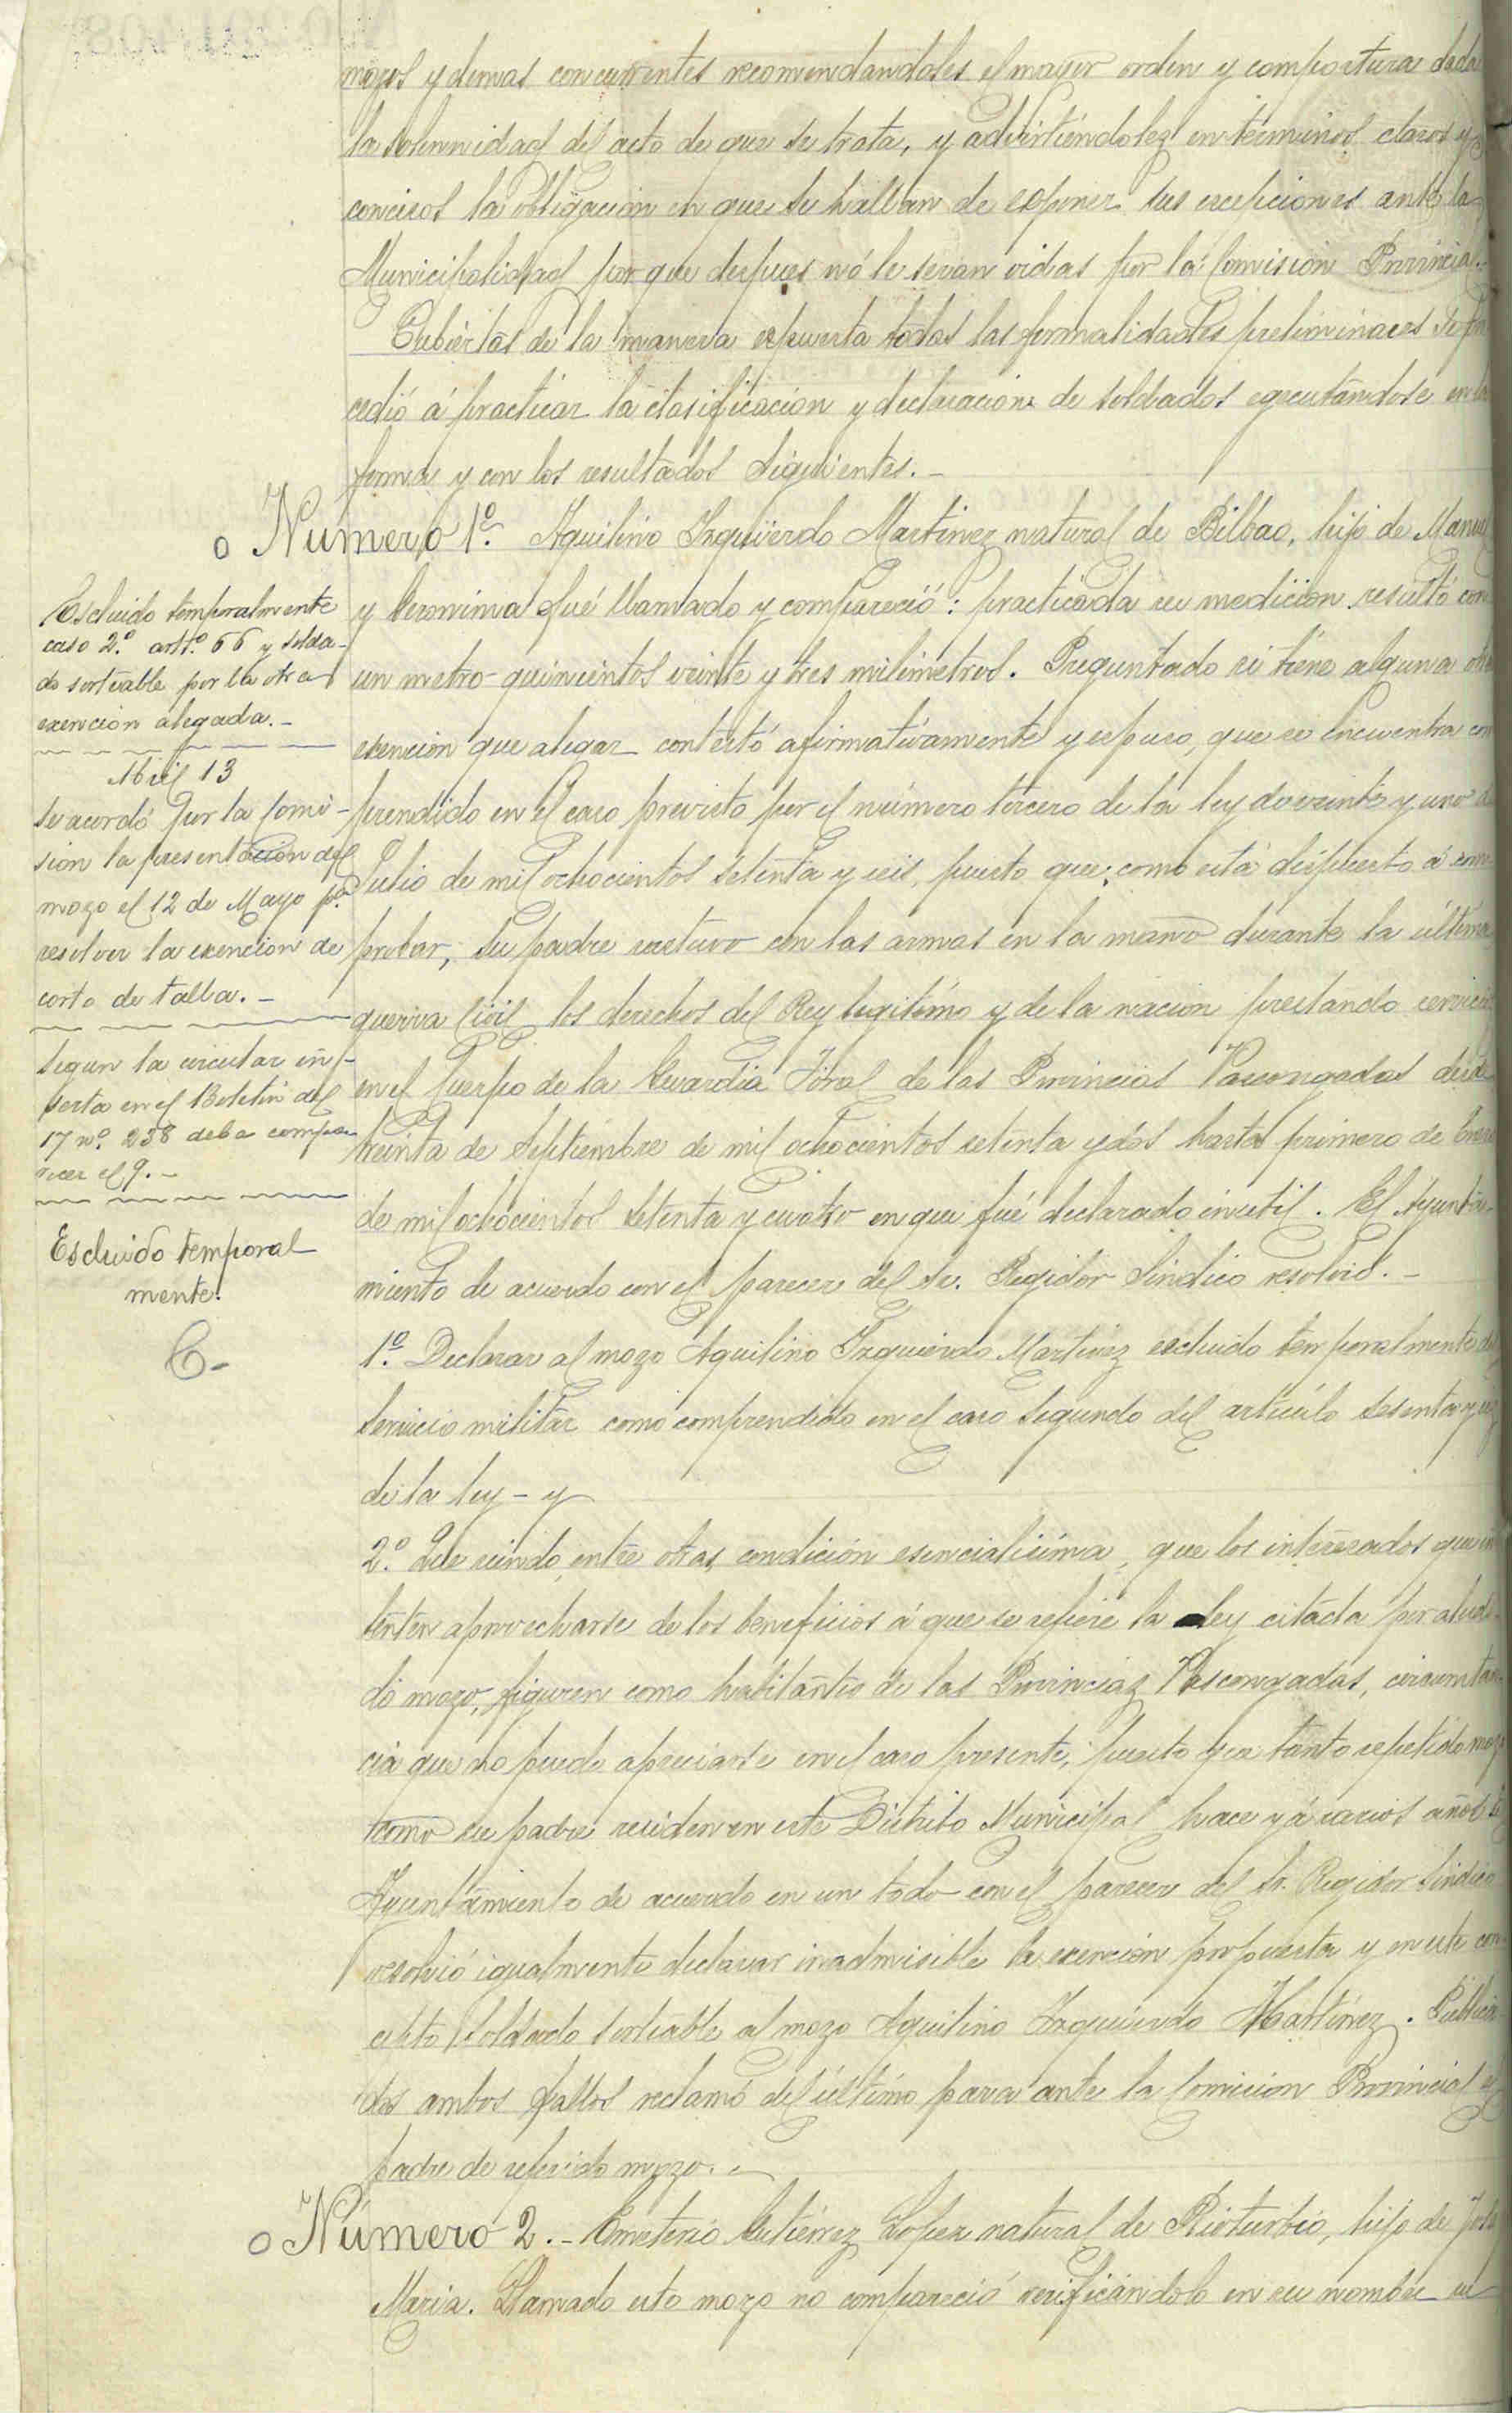 mozos y demas concurrentes recomendandoles el mayor orden y compostura dada
la solemnidad del acto de que se trata, y advirtiéndolez en términos claros y
concisos la obligación en que se hallan de esponer sus escepciones ante la
Municipalidad por que despues nó le seran oidas por la Comisión Provincial.
Cubiertas de la manera espuesta todas las formalidades preliminares se pro
cedió á practicar la clasificación y declaracion de soldados egecutándose en la
forma y con los resultados siguientes.-
Número 1º. Aquilino Izquierdo Martinez natural de Bilbao, hijo de Manuel
y Geronima fué llamado y compareció: practicada su medicion resultó con
un metro quinientos veinte y tres milimetros. Preguntado si tiene alguna otra
exención que alegar contestó afirmativamente y espuso, que se encuentra com
prendido en el caso previsto por el número tercero de la ley de veinte y uno de
Julio de mil ochocientos setenta y seis, puesto que, como está dispuesto á com-
probar, su padre sostuvo con las armas en la mano durante la última
guerra civil los derechos del Rey legitimo y de la nacion prestando servicio
en el Cuerpo de la Guardia Foral de las Provincias Vascongadas desde
treinta de Septiembre de mil ochocientos setenta y dos hasta primero de Enero
de mil ochocientos setenta y cuatro en que fué declarado inutil. El Ayunta-
miento de acuerdo con el parecer del Sr. Regidor Sindico resolvió.-
1º. Declarar al mozo Aquilino Izquierdo Martinez escluido temporalmente del
servicio militar como comprendido en el caso segundo del artículo sesenta y seis
de la ley - y
2º. Que siendo, entre otras, condición esencialisima, que los interesados que in
tenten aprovecharse de los beneficios á que se refiere la ley citada por aludi-
do mozo, figuren como habitantes de las Provincias Vascongadas, circunstan-
cia que no puede apreciarse en el caso presente, puesto que tanto repetido mozo
como su padre residen en este Distrito Municipal hace yá varios años el
Ayuntamiento de acuerdo en un todo con el parecer del Sr. Regidor Sindico
resolvió igualmente declarar inadmisible la exención propuesta y en este con-
cepto soldado sorteable al mozo Aquilino Izquierdo Martinez. Publica
dos ambos fallos reclamó del último para ante la Comision Provincial el
padre de referido mozo.-
Número 2.- Emeterio Gutiérrez Lopez natural de Rioturbio, hijo de José
Maria. Llamado este mozo no compareció verificándolo en su nombre su
Escluido temporalmente
caso 2º. artº. 66 y solda-
do sorteable por la otra
exencion alegada.-
Abril 13
Se acordó por la Comi-
sion la presentacion del
mozo el 12 de Mayo pª.
resolver la exencion de
corto de talla.-
Segun la circular in-
serta en el Boletin del
17 nº. 238 debe compa-
recer el 9.-
Escluido temporal
mente.
C-